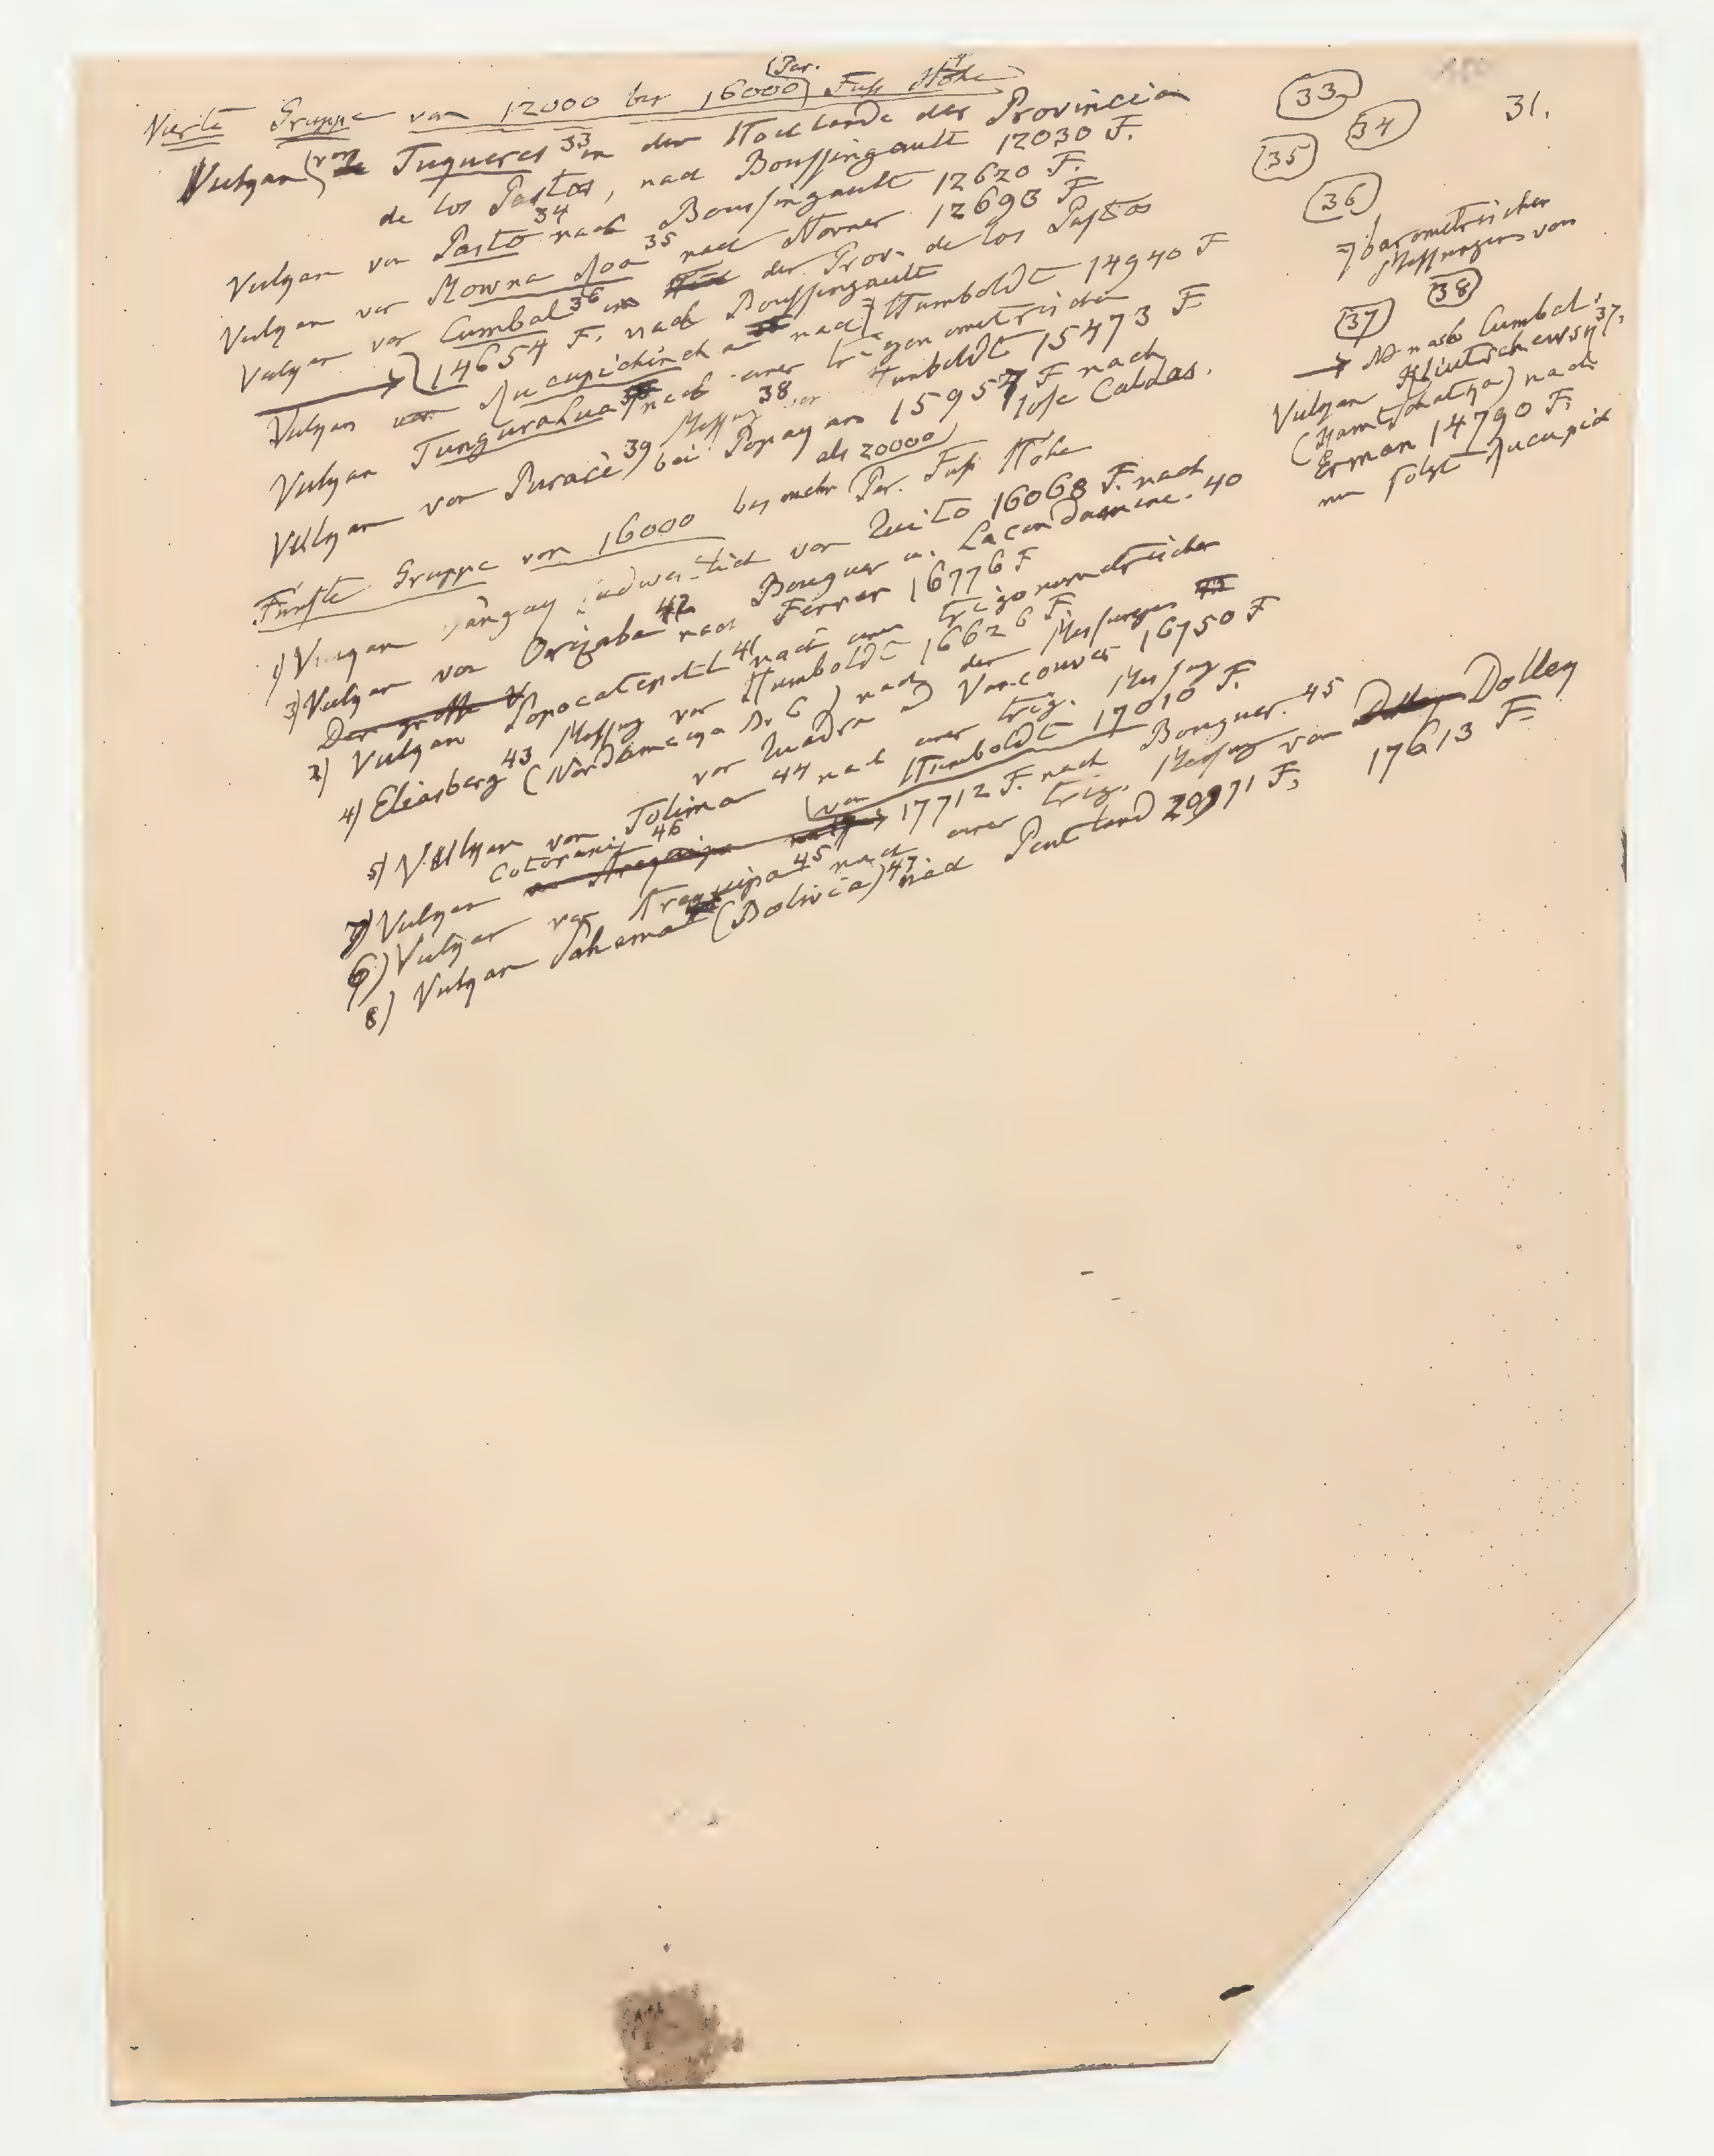 31.
Vierte Gruppe von 12000 bis 16000 (Par. Fuß Höhe
Vulkan von Tuqueres 33 in dem Hochlande der Provincia
de los Pastos, nach Boussingault 12030 F.
Vulkan von Pasto 34 nach Boussingault 12620 F.
Vulkan von Mowna Roa 35 nach Horner 12693 F
Vulkan von Cumbal 36 in der Prov. de los Pastos
14654 F. nach Boussingault
Vulkan von Rucupichincha nach Humboldt 14940 F
Vulkan Tungurahua nach einer trigonometrischen
Messung 38 von Humboldt 15473 F
Vulkan von Puracé 39) bei Popayan 15957 F nach
José Caldas.
Fünfte Gruppe von 16000 bis mehr als 20000) Par. Fuß Höhe
1) Vulkan Sangay südwestlich von Quito 16068 F. nach
Bouguer u. Lacondamine. 40
3) Vulkan von Orizaba 42 nach Ferrer 16776 F
Der große V
2) Vulkan Popocatepetl 41 nach einer trigonometrischen
Messung von Humboldt 16626 F.
4) Eliasberg 43 (Nordamerika Br 6 ) nach den Messungen
von Quadra und Vancouver 16750 F
5) Vulkan von Tolima 44 nach einer trig. Messung
von Humboldt 17010 F.
7) Vulkan Cotopaxi 46 17712 F. nach Bouguer. 45
6) Vulkan von Arequipa 45 nach einer trig. Messung von Dolley
17613 F
8) Vulkan Sahama (Bolivia) 47 nach Pentland 20971 F.
33
34
35
36
7) barometrischer
Messungen von
37
38
→ NB nach Cumbal:
Vulkan Kliutschewsk 37.
(Kamtschatka) nach
Erman 14790 F.
nun folgt Rucupich